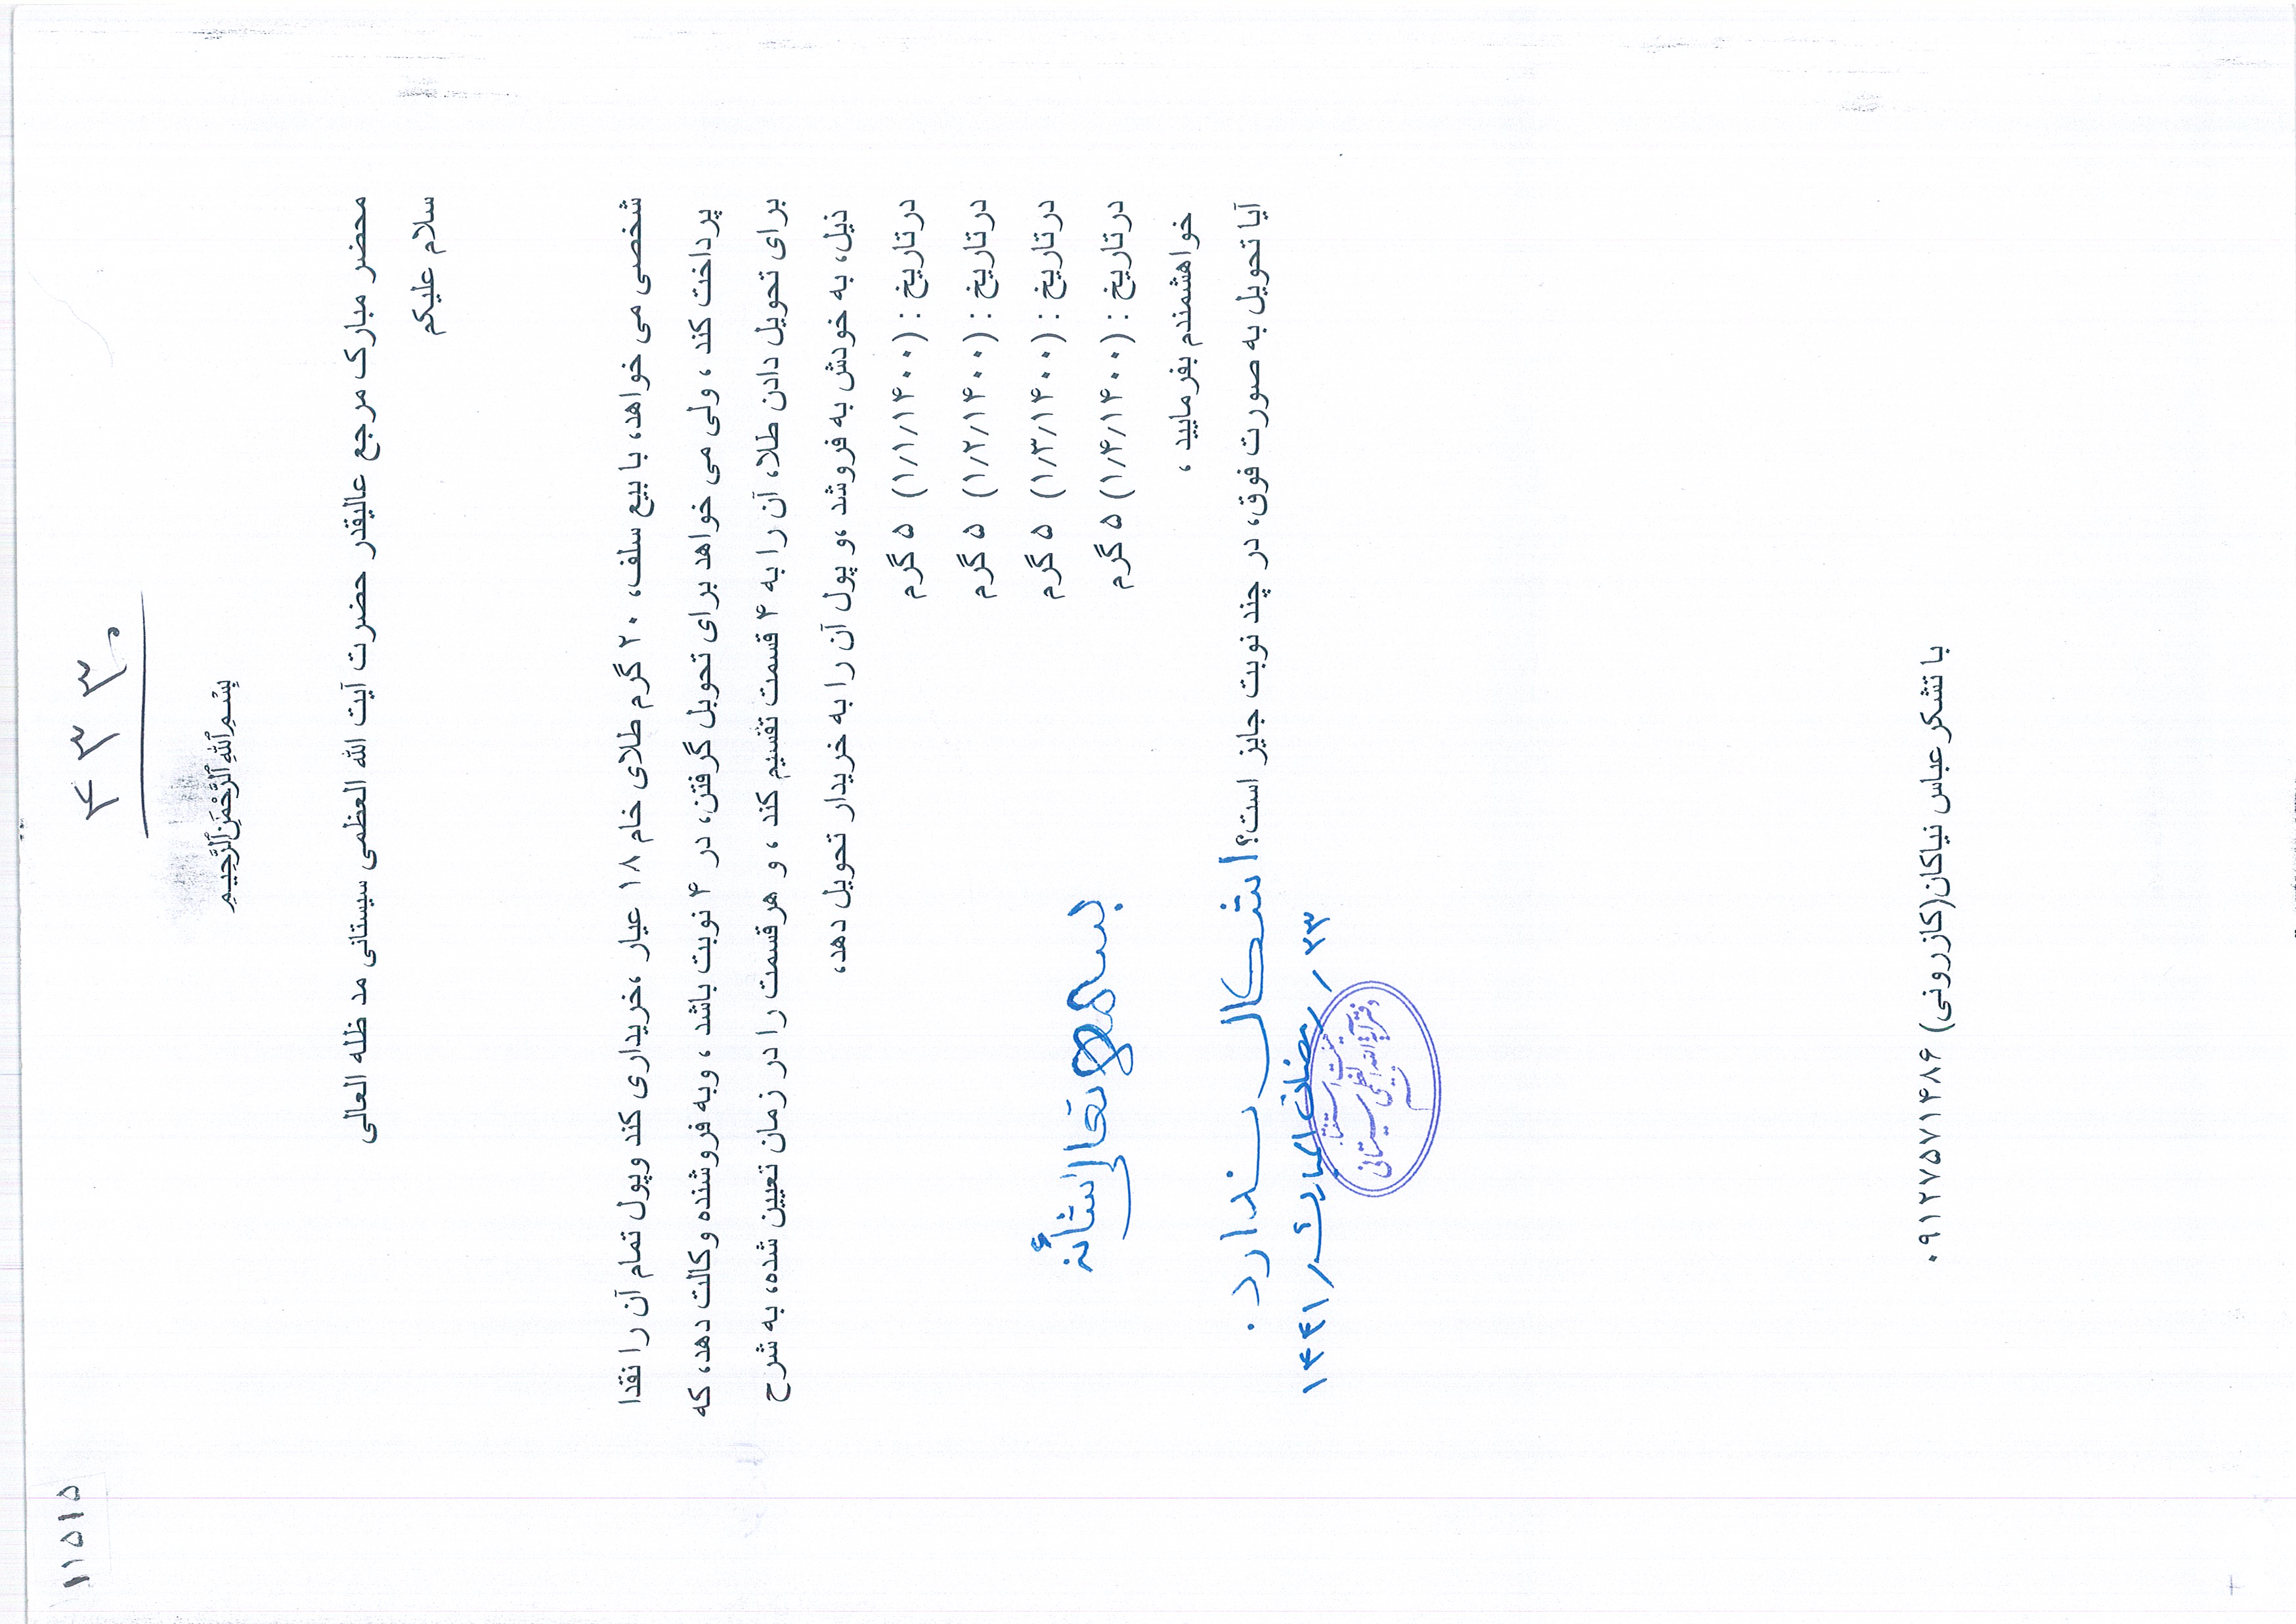 ۱۱۵۱۵
۴۳۳۰
بِسْمِ اللَّهِ الرَّحْمَنِ الرَّحِيمِ
محضر مبارک مرجع عالیقدر حضرت آیت الله العظمی سیستانی مد ظله العالی
سلام علیکم
شخصی می خواهد، با بیع سلف، ۲۰ گرم طلای خام ۱۸ عیار ،خریداری کند وپول تمام آن را نقدا
پرداخت کند ، ولی می خواهد برای تحویل گرفتن، در ۴ نوبت باشد ، وبه فروشنده وکالت دهد، که
برای تحویل دادن طلا، آن را به ۴ قسمت تقسیم کند ، و هرقسمت را در زمان تعیین شده، به شرح
ذیل، به خودش به فروشد ،و پول آن را به خریدار تحویل دهد،
درتاریخ : (۱/۱/۱۴۰۰) ۵ گرم
درتاریخ : (۱/۲/۱۴۰۰) ۵ گرم
درتاریخ : (۱/۳/۱۴۰۰) ۵ گرم
درتاریخ : (۱/۴/۱۴۰۰) ۵ گرم
خواهشمندم بفرمایید ،
بسمه تعالی شأنه
آیا تحویل به صورت فوق، در چند نوبت جایز است؟ اشکال ندارد.
۲۳/رمضان المبارک/۱۴۴۱
دفتر آیة الله العظمی سیستانی
باتشکر عباس نیاکان(کازرونی) ۰۹۱۲۷۵۷۱۴۸۶